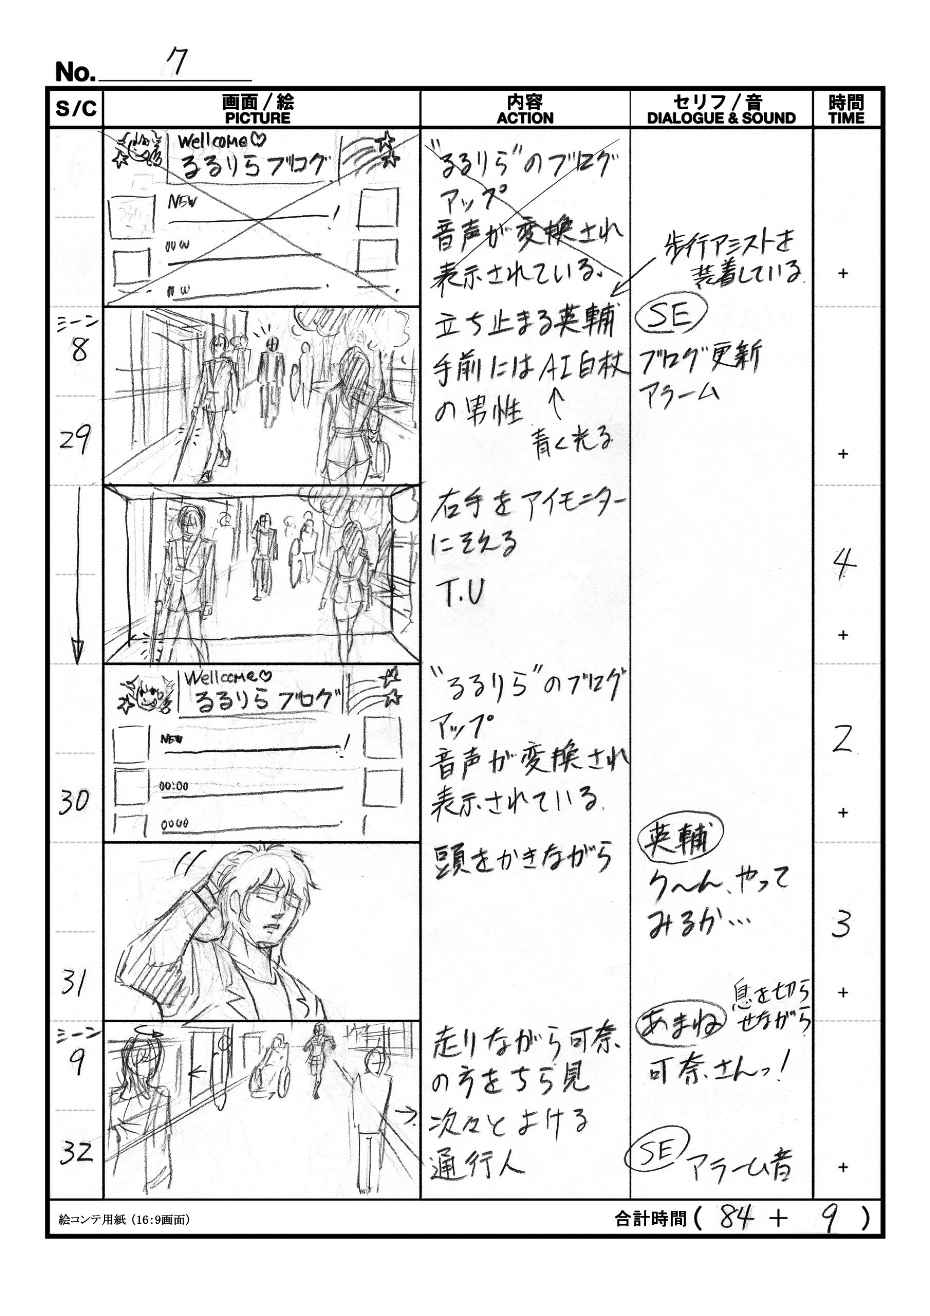 No. 7
S/C
画面/絵
PICTURE
内容
ACTION
セリフ/音
DIALOGUE & SOUND
時間
TIME
Wellcome♡
るるりらブログ
NEW
!
"るるりら"のブログ
アップ
音声が変換され
表示されている.
歩行アシストを
装着している
+
シーン
8
29
立ち止まる英輔
手前にはAI白杖
の男性
青く光る
SE
ブログ更新
アラーム
+
右手をアイモニター
にそえる
T.U
4
+
Wellcome♡
るるりらブログ
NEW
!
00:00
30
"るるりら"のブログ
アップ
音声が変換され
表示されている
2
+
31
頭をかきながら
英輔
う〜ん、やって
みるか…
3
+
シーン
9
32
走りながら可奈
の方をちら見
次々とよける
通行人
あまね
息を切ら
せながら
可奈さんっ!
SE
アラーム音
+
絵コンテ用紙(16:9画面)
合計時間( 84 + 9 )